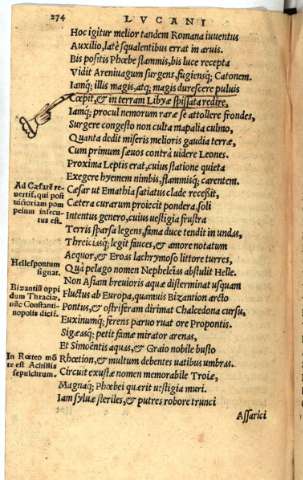 274 LVCANI
Hoc igitur melior tandem Romana iuuentus
Auxilio, latè squalentibus errat in aruis.
Bis positis Phœbe flammis, bis luce recepta
Vidit Arenivagum surgens, fugiensq; Catonem.
Iamq; illis magis, atq; magis durescere puluis
Cœpit, & in terram Libyæ spissata redire,
Iamq; procul nemorum raræ se attollere frondes,
Surgere congesto non culta mapalia culmo,
Quanta dedit miseris melioris gaudia terræ,
Cum primum sæuos contrà uidere Leones.
Proxima Leptis erat, cuius statione quieta
Exegere hyemem nimbis, flammisq; carentem.
Ad Cæsarē re-
uertit, qui post
uictoriam pom
peium insecu-
tus est.
Cæsar ut Emathia satiatus clade recessit,
Cætera curarum proiecit pondera soli
Intentus genero, cuius uestigia frustra
Terris sparsa legens, fama duce tendit in undas,
Threiciasq; legit fauces, & amore notatum
Aequor, & Eroas lachrymoso littore turres,
Hellespontum
signat.
Quà pelago nomen Nepheleias abstulit Helle.
Non Asiam breuioris aquæ disterminat usquam
Bizantiū oppi
dum Thraciæ,
nūc Constanti-
nopolis dicit.
Fluctus ab Europa, quamuis Bizantion arcto
Pontus, & ostriferam dirimat Chalcedona cursu,
Euxinumq; ferens paruo ruat ore Propontis.
Sigæasq; petit famæ mirator arenas,
Et Simoëntis aquas, & Graio nobile busto
In Rœteo mō
te est Achillis
sepulchrum.
Rhœtion, & multum debentes uatibus umbras.
Circuit exustæ nomen memorabile Troiæ,
Magnaq; Phœbei quærit uestigia muri.
Iam syluæ steriles, & putres robore trunci
Assarici